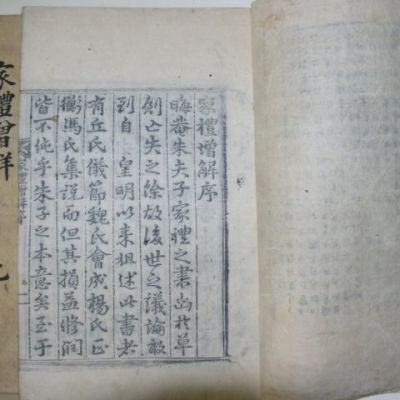 家禮增解序
晦菴朱夫子家禮之書出於草
創亡失之餘故後世之議論敢
到自 皇明以來祖述此書者
有丘氏儀節魏氏會成楊氏正
衡馮氏集說而但其損益修潤
皆不純乎朱子之本意矣至于
家禮增解序
家禮增解